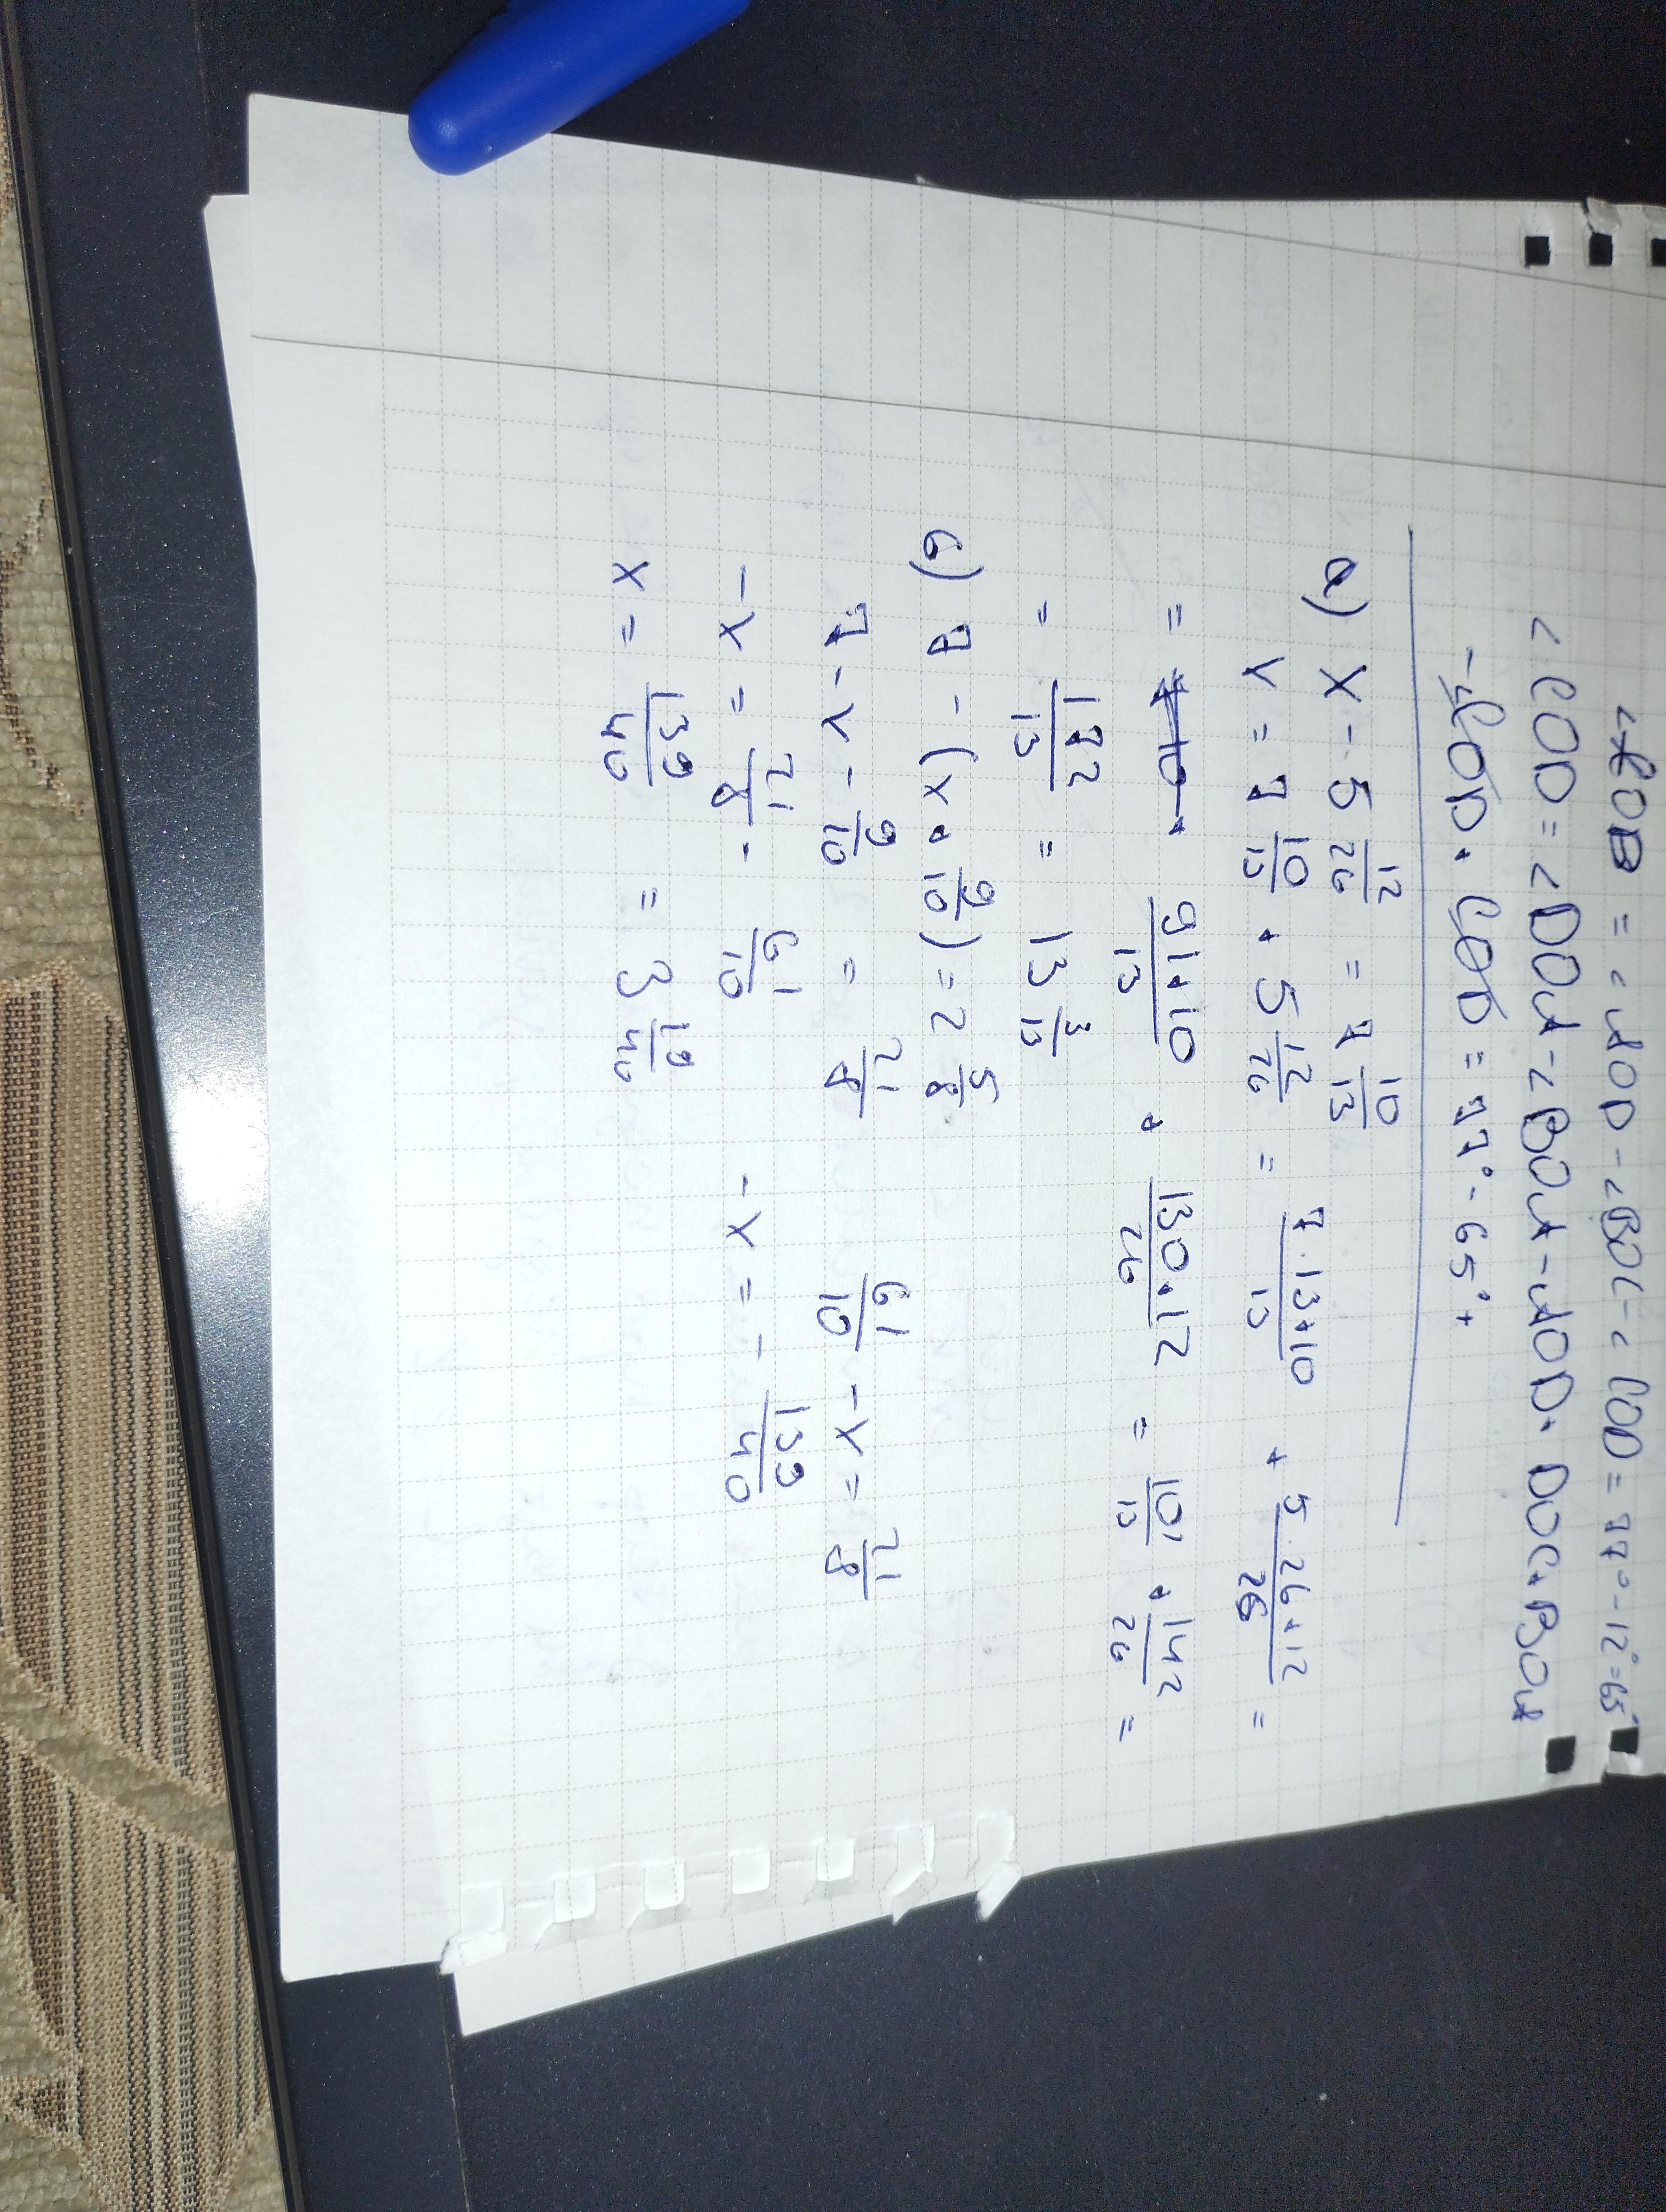 = ∠MOD - ∠BOC - ∠COD = 77° - 12° = 65°
∠COD = ∠DOM - ∠BOM - MOD + DOC + BOM
= 77° - 65° +
a) x - 5 12/26 = 7 10/13
x = 7 10/13 + 5 12/26 = 7·13+10/13 + 5·26+12/26 =
= 91+10/13 + 130+12/26 = 101/13 + 142/26 =
= 172/13 = 13 3/13
б) 7 - (x + 9/10) = 2 5/8
7 - x - 9/10 = 21/8 61/10 - x = 21/8
- x = 21/8 - 61/10 - x = - 139/40
x = 139/40 = 3 19/40